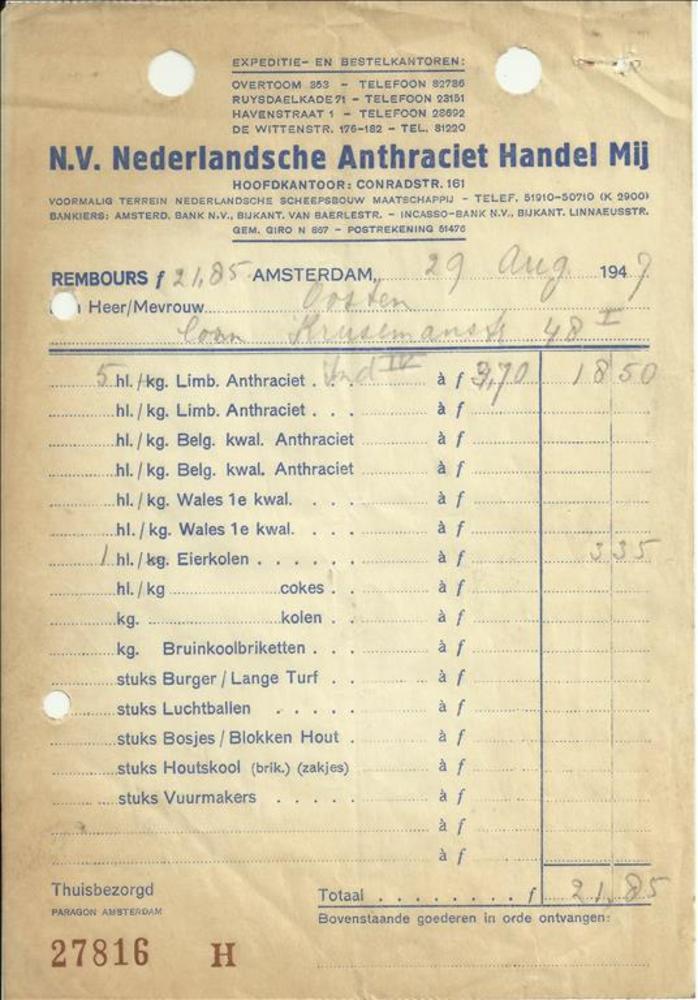 EXPEDITIE- EN BESTELKANTOREN:
OVERTOOM 353 - TELEFOON 82786
RUYSDAELKADE 71 - TELEFOON 23151
HAVENSTRAAT 1 - TELEFOON 28692
DE WITTENSTR. 176-182 - TEL. 81220
N.V. Nederlandsche Anthraciet Handel Mij
HOOFDKANTOOR: CONRADSTR. 161
VOORMALIG TERREIN NEDERLANDSCHE SCHEEPSBOUW MAATSCHAPPIJ - TELEF. 51910-50710 (K 2900)
BANKIERS: AMSTERD. BANK N.V., BIJKANT. VAN BAERLESTR. - INCASSO-BANK N.V., BIJKANT. LINNAEUSSTR.
GEM. GIRO N 867 - POSTREKENING 51476
REMBOURS f 21,85 AMSTERDAM, 29 Aug. 1947
Heer/Mevrouw Oosten
Coen Krusemanstr 48 I
Ind IV
5 hl./kg. Limb. Anthraciet . . . à f 3,70 18 50
hl./kg. Limb. Anthraciet . . . à f
hl./kg. Belg. kwal. Anthraciet à f
hl./kg. Belg. kwal. Anthraciet à f
hl./kg. Wales 1e kwal. . . . à f
hl./kg. Wales 1e kwal. . . . à f
1 hl./kg. Eierkolen . . . . . . à f 3 35
hl./kg cokes . . à f
kg. kolen . . à f
kg. Bruinkoolbriketten . . . à f
stuks Burger / Lange Turf . . à f
stuks Luchtballen . . . . . à f
stuks Bosjes / Blokken Hout . à f
stuks Houtskool (brik.) (zakjes) à f
stuks Vuurmakers . . . . . à f
à f
à f
Thuisbezorgd
Totaal . . . . . . . . f 21,85
PARAGON AMSTERDAM
Bovenstaande goederen in orde ontvangen:
27816 H